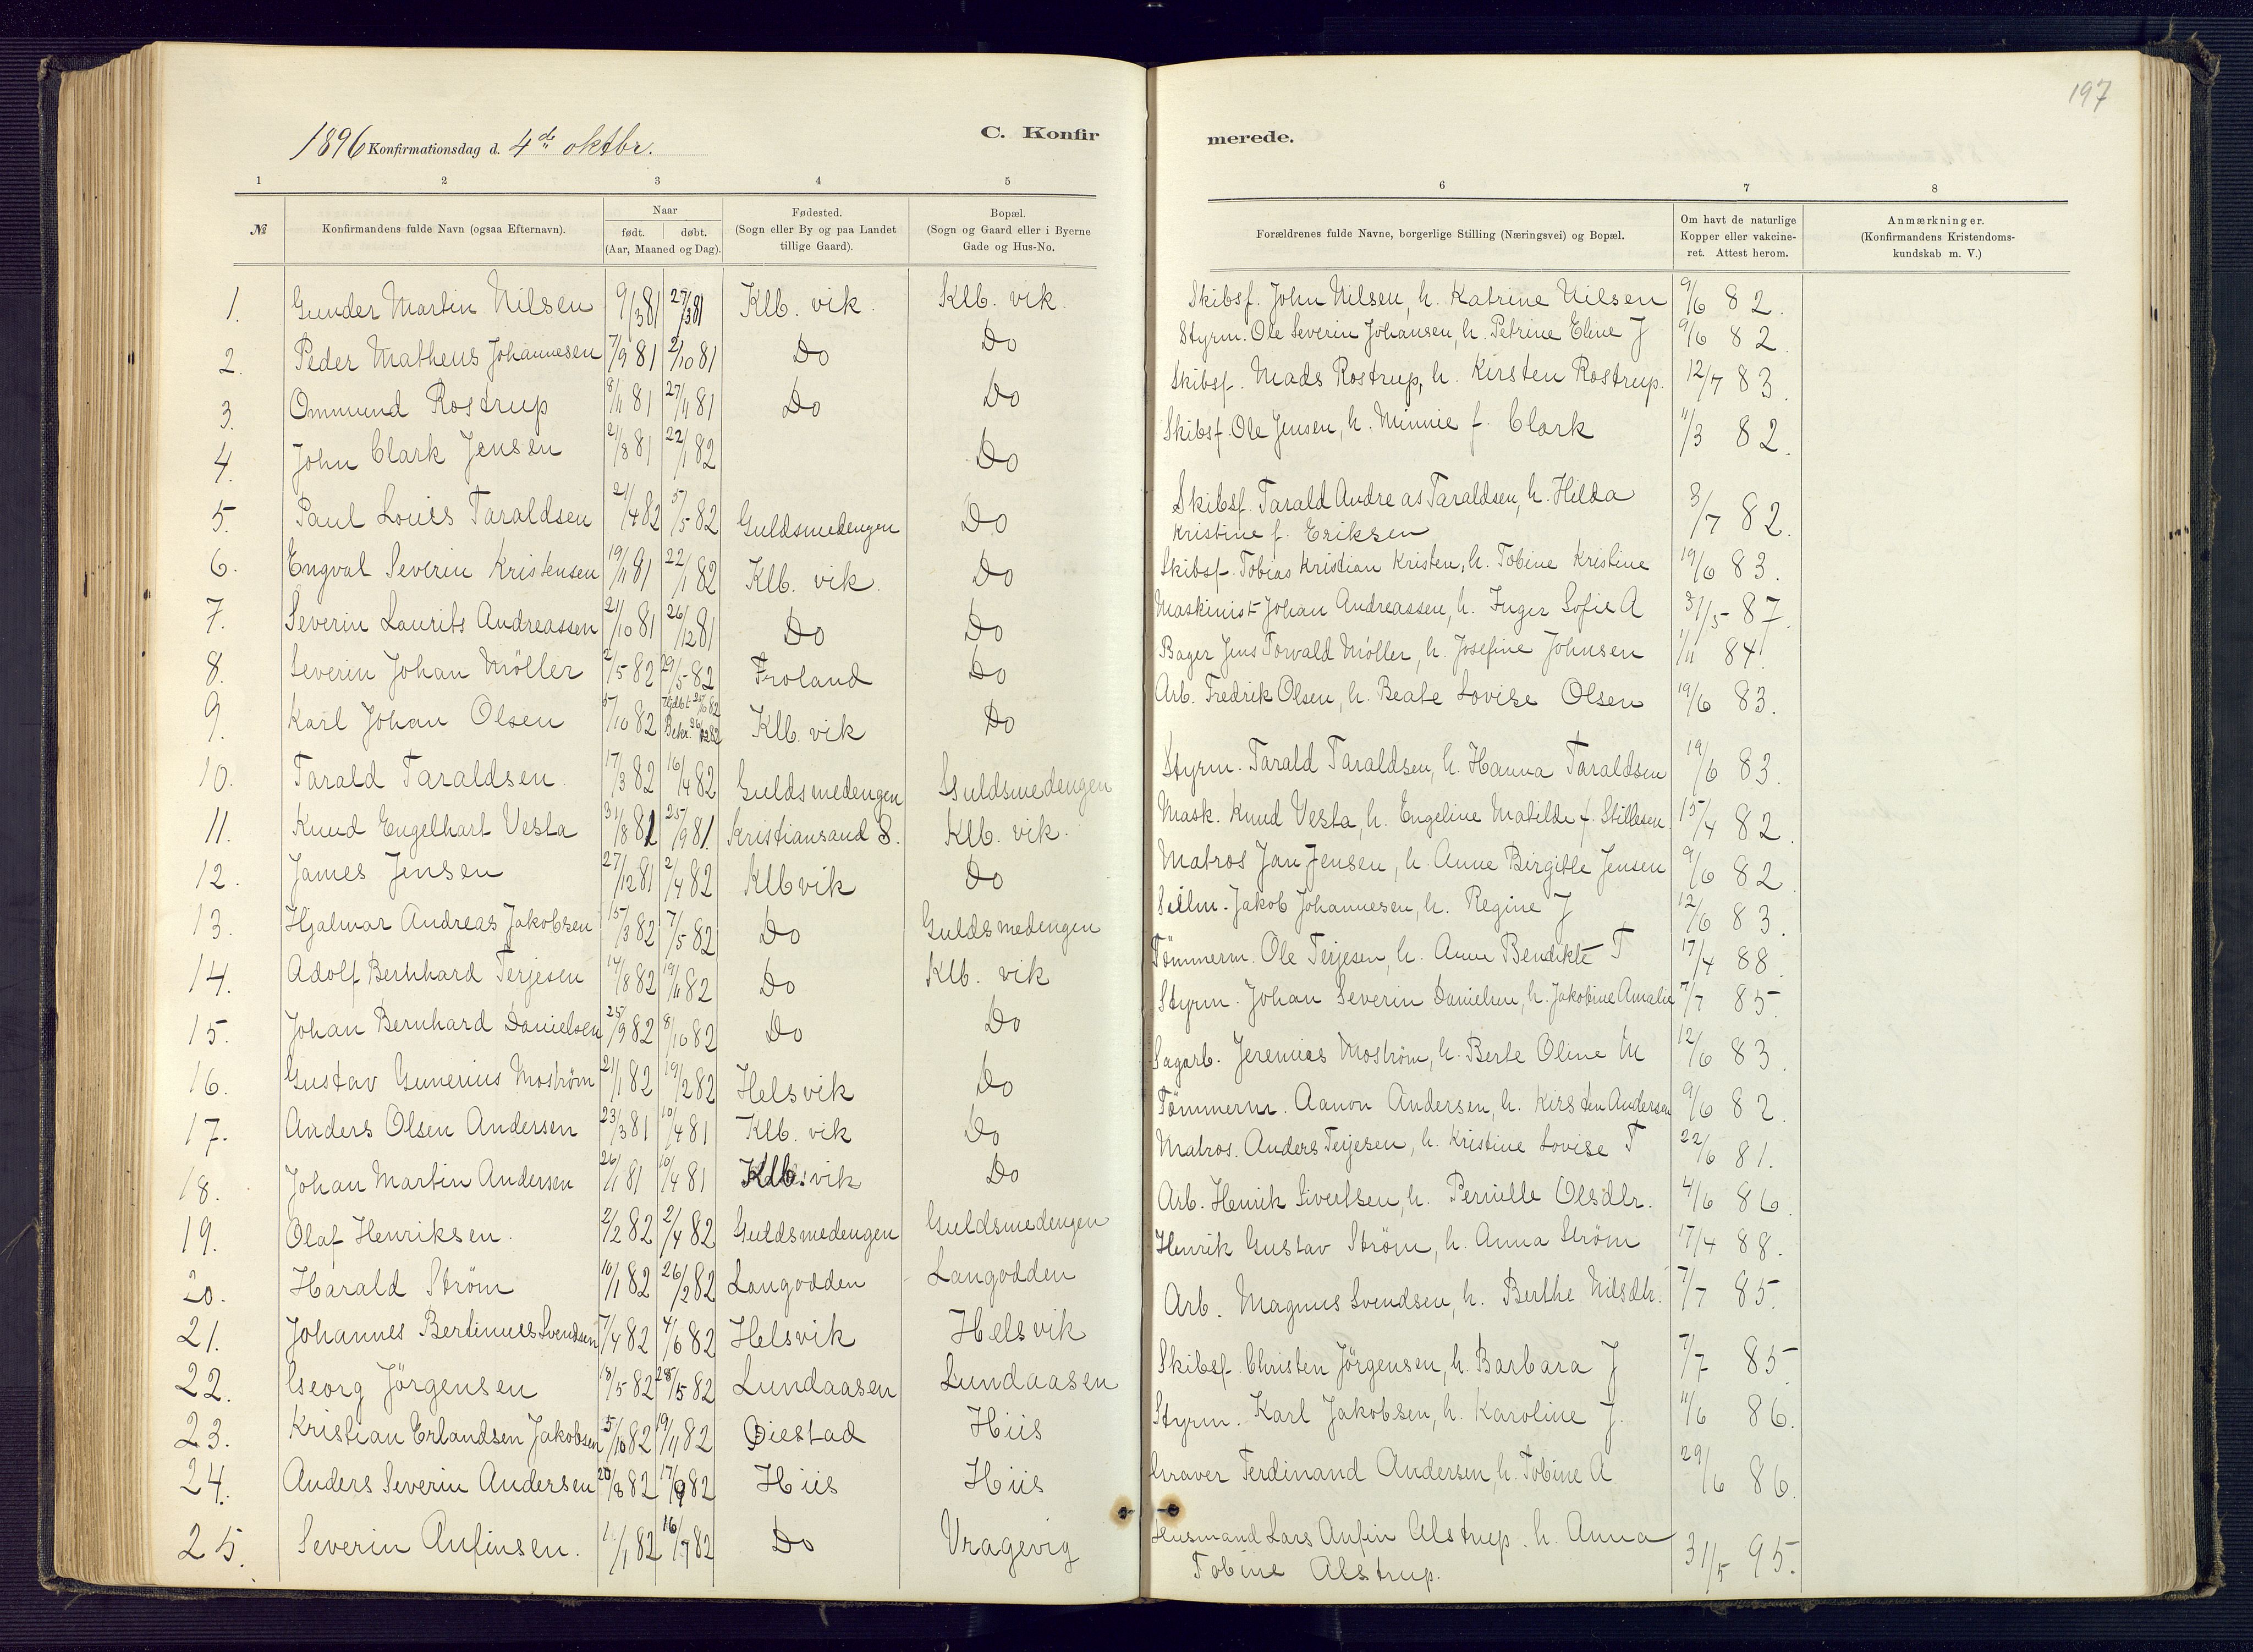 197
1896 Konfirmationsdag d. 4de oktbr.
C. Konfir
merede.
1 2 3 4 5
6 7 8
№ Konfirmandens fulde Navn (ogsaa Efternavn). Naar født. døbt. (Aar, Maaned og Dag). Fødested. (Sogn eller By og paa Landet tillige Gaard). Bopæl. (Sogn og Gaard eller i Byerne Gade og Hus-No.
Forældrenes fulde Navne, borgerlige Stilling (Næringsvei) og Bopæl. Om havt de naturlige Kopper eller vakcineret. Attest herom. Anmærkninger. (Konfirmandens Kristendomskundskab m. V.)
1. Gunder Martin Nilsen 9/3 81 27/3 81 Klb. vik. Klb. vik. Skibsf. John Nilsen, h. Katrine Nilsen 9/6 82.
2. Peder Matheus Johannesen 7/9 81 2/10 81 Do Do Styrm. Ole Severin Johansen, h. Petrine Eline J 9/6 82.
3. Ommund Rostrup 8/11 81 27/11 81 Do Do Skibsf. Mads Rostrup, h. Kirsten Rostrup. 12/7 83.
4. John Clark Jensen 2/8 81 22/1 82 Do Skibsf. Ole Jensen, h. Minnie f. Clark 11/3 82.
5. Paul Louis Taraldsen 21/4 82 5/5 82 Guldsmedengen Do Skibsf. Tarald Andreas Taraldsen, h. Hilda
Kristine f. Eriksen 3/7 82.
6. Engval Severin Kristensen 19/11 81 22/1 82 Klb. vik. Do Skibsf. Tobias Kristian Kristen, h. Tobine Kristine 19/6 83.
7. Severin Laurits Andreassen 21/10 81 26/12 81 Do Do Maskinist Johan Andreassen, h. Inger Sofie A 31/5 87.
8. Severin Johan Möller 2/5 82 29/5 82 Froland Do Bager Jens Torvald Möller, h. Josefine Johnsen 1/11 84.
9. Karl Johan Olsen 5/10 82 Bekr. 26/12 82 Klb. vik Do Arb. Fredrik Olsen, h. Beate Lovise Olsen 19/6 83.
10. Tarald Taraldsen. 17/3 82 16/4 82 Guldsmedengen Guldsmedengen Styrm. Tarald Taraldsen, h. Hanna Taraldsen 19/6 83.
11. Knud Engelhart Vesta 31/8 81 25/9 81. Kristiansand S. Klb. vik. Mask. Knud Vesta, h. Engeline Matilde f. Stillesen. 15/4 82.
12. James Jensen 27/12 81 2/4 82 Klb vik Do Matros Jan Jensen, h. Anne Birgitte Jensen 9/6 82.
13. Hjalmar Andreas Jakobsen 15/3 82 7/5 82 Do Guldsmedengen Seilm. Jakob Johannesen, h. Regine J 12/6 83.
14. Adolf Bernhard Terjesen 14/8 82 19/11 82 Do Klb. vik Tömmerm. Ole Terjesen, h. Anne Bendikte T 17/4 88.
15. Johan Bernhard Danielsen 25/9 82 8/10 82 Do Do Styrm. Johan Severin Danielsen, h. Jakobine Amalie 7/7 85.
16. Gustav Gunerius Moström 21/1 82 19/2 82 Helsvik Do Sagarb. Jeremias Moström, h. Berte Oline M 12/6 83.
17. Anders Olsen Andersen 23/3 81 10/4 81 Klb. vik Do Tömmerm. Aanon Andersen, h. Kirsten Andersen 9/6 82.
18. Johan Martin Andersen 26/1 81 10/4 81 Klb. vik Do Matros. Anders Terjesen, h. Kristine Lovise T 22/6 81.
19. Olaf Henriksen. 2/2 82 2/4 82 Guldsmedengen Guldsmedengen Arb. Henrik Sivertsen, h. Pernille Olsdtr. 4/6 86.
20. Harald Ström 10/1 82 26/2 82 Langodden Langodden Henrik Gustav Ström, h. Anna Ström 17/4 88.
21. Johannes Bertinues Svendsen 7/4 82 4/6 82 Helsvik Helsvik Arb. Magnus Svendsen, h. Berthe Nilsdtr. 7/7 85.
22. Georg Jörgensen 18/5 82 28/5 82 Lundaasen Lundaasen Skibsf. Christen Jörgensen, h. Barbara J 7/7 85
23. Kristian Erlandsen Jakobsen 5/10 82 19/11 82 Øiestad Hiis Styrm. Karl Jakobsen, h. Karoline J. 11/6 86.
24. Anders Severin Andersen 20/8 82 17/9 82 Hiis Hiis Graver Ferdinand Andersen, h. Tobine A 29/6 86.
25. Severin Anfinsen. 1/1 82 16/7 82 Do Vragevig Lensmand Lars Anfin Alstrup. h. Anna
Tobine Alstrup. 31/5 95.